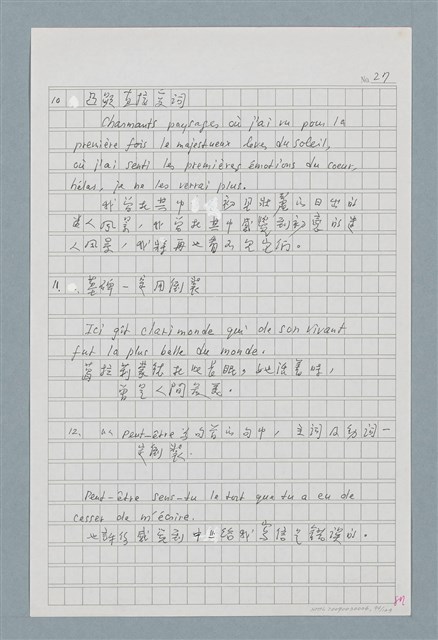 No 27
10. 凸顯直接受詞
Charmants paysages où j'ai vu pour la
première fois le majestueux lever du soleil,
où j'ai senti les premières émotions du coeur,
hélas, je ne les verrai plus.
我曾在其中初見壯麗的日出的
迷人風景，我曾在其中感覺到初the的迷
人風景，我將再也看不見它們。
11. 墓碑一定用倒裝
Ici gît clarimonde qui de son vivant
fut la plus belle du monde.
葛拉蒙德在此長眠，她活著時，
曾是人間最美。
12. 以 peut-être 為句首的句中，主詞及動詞一
定倒裝。
Peut-être sens-tu le tort que tu a eu de
cesser de m'écrire.
也許你感覺到中止給我寫信是錯誤的。